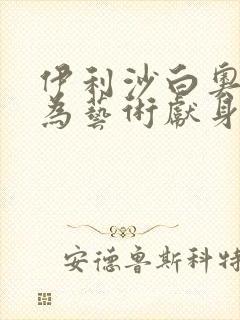 伊利沙白奧
為藝術獻身
安德魯斯科特